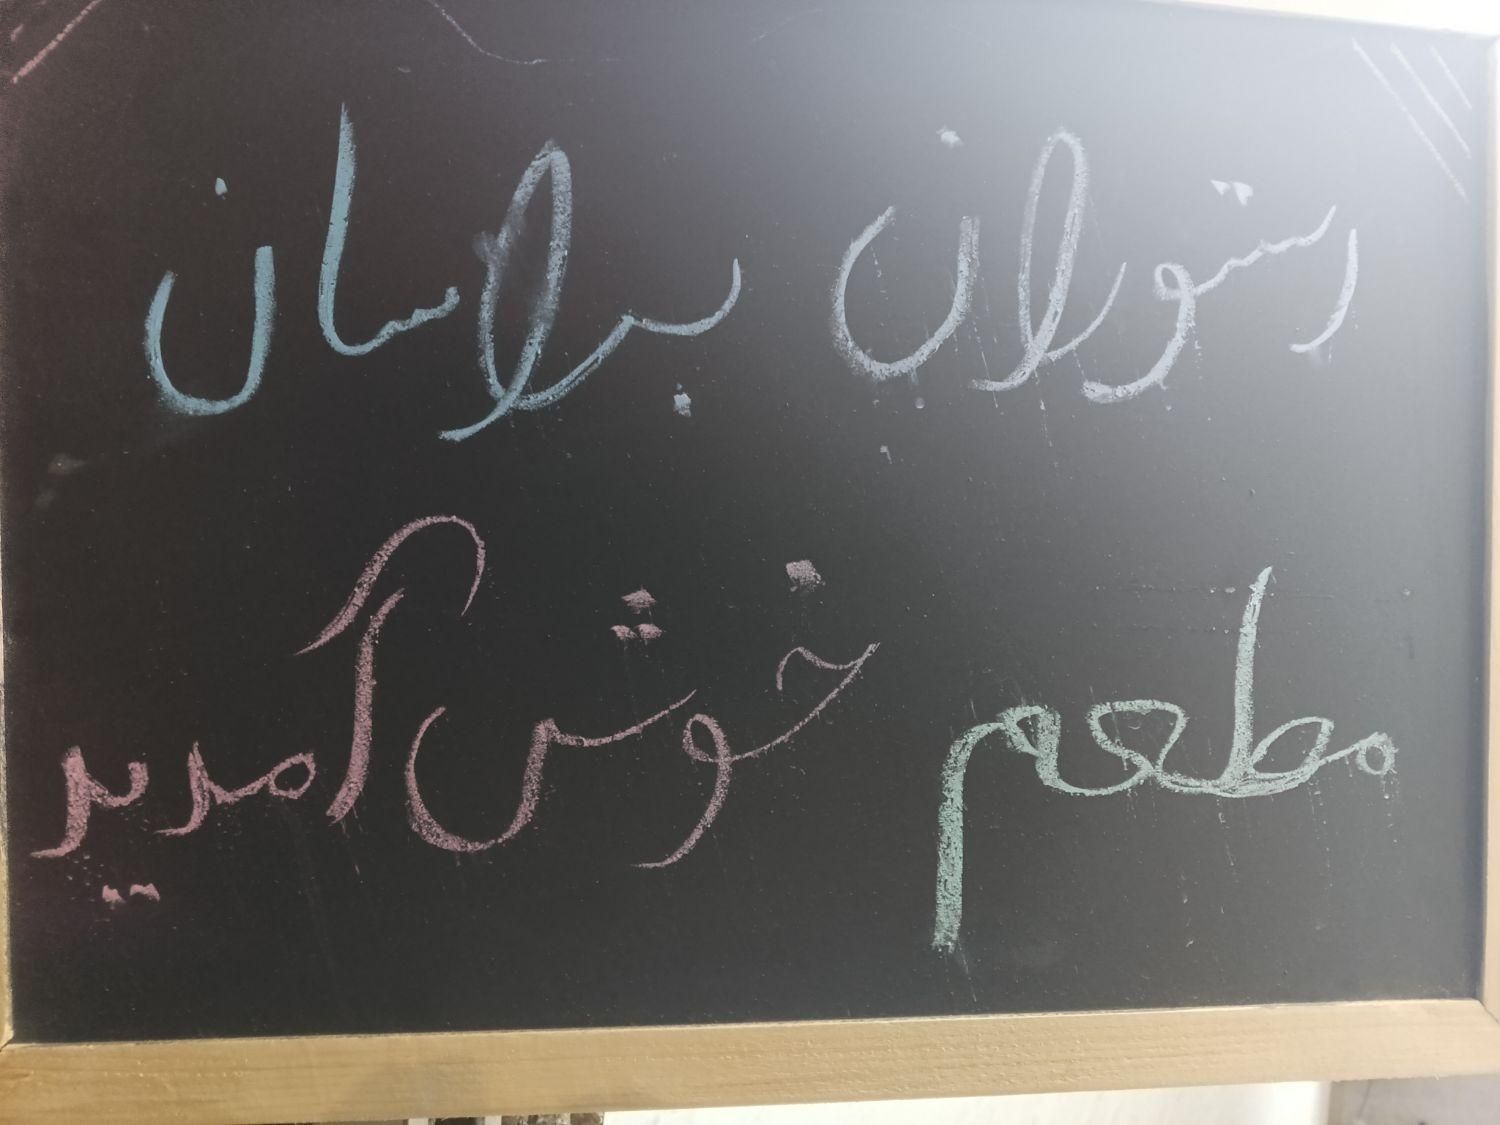 رستوران
مطعم خوش آمدید